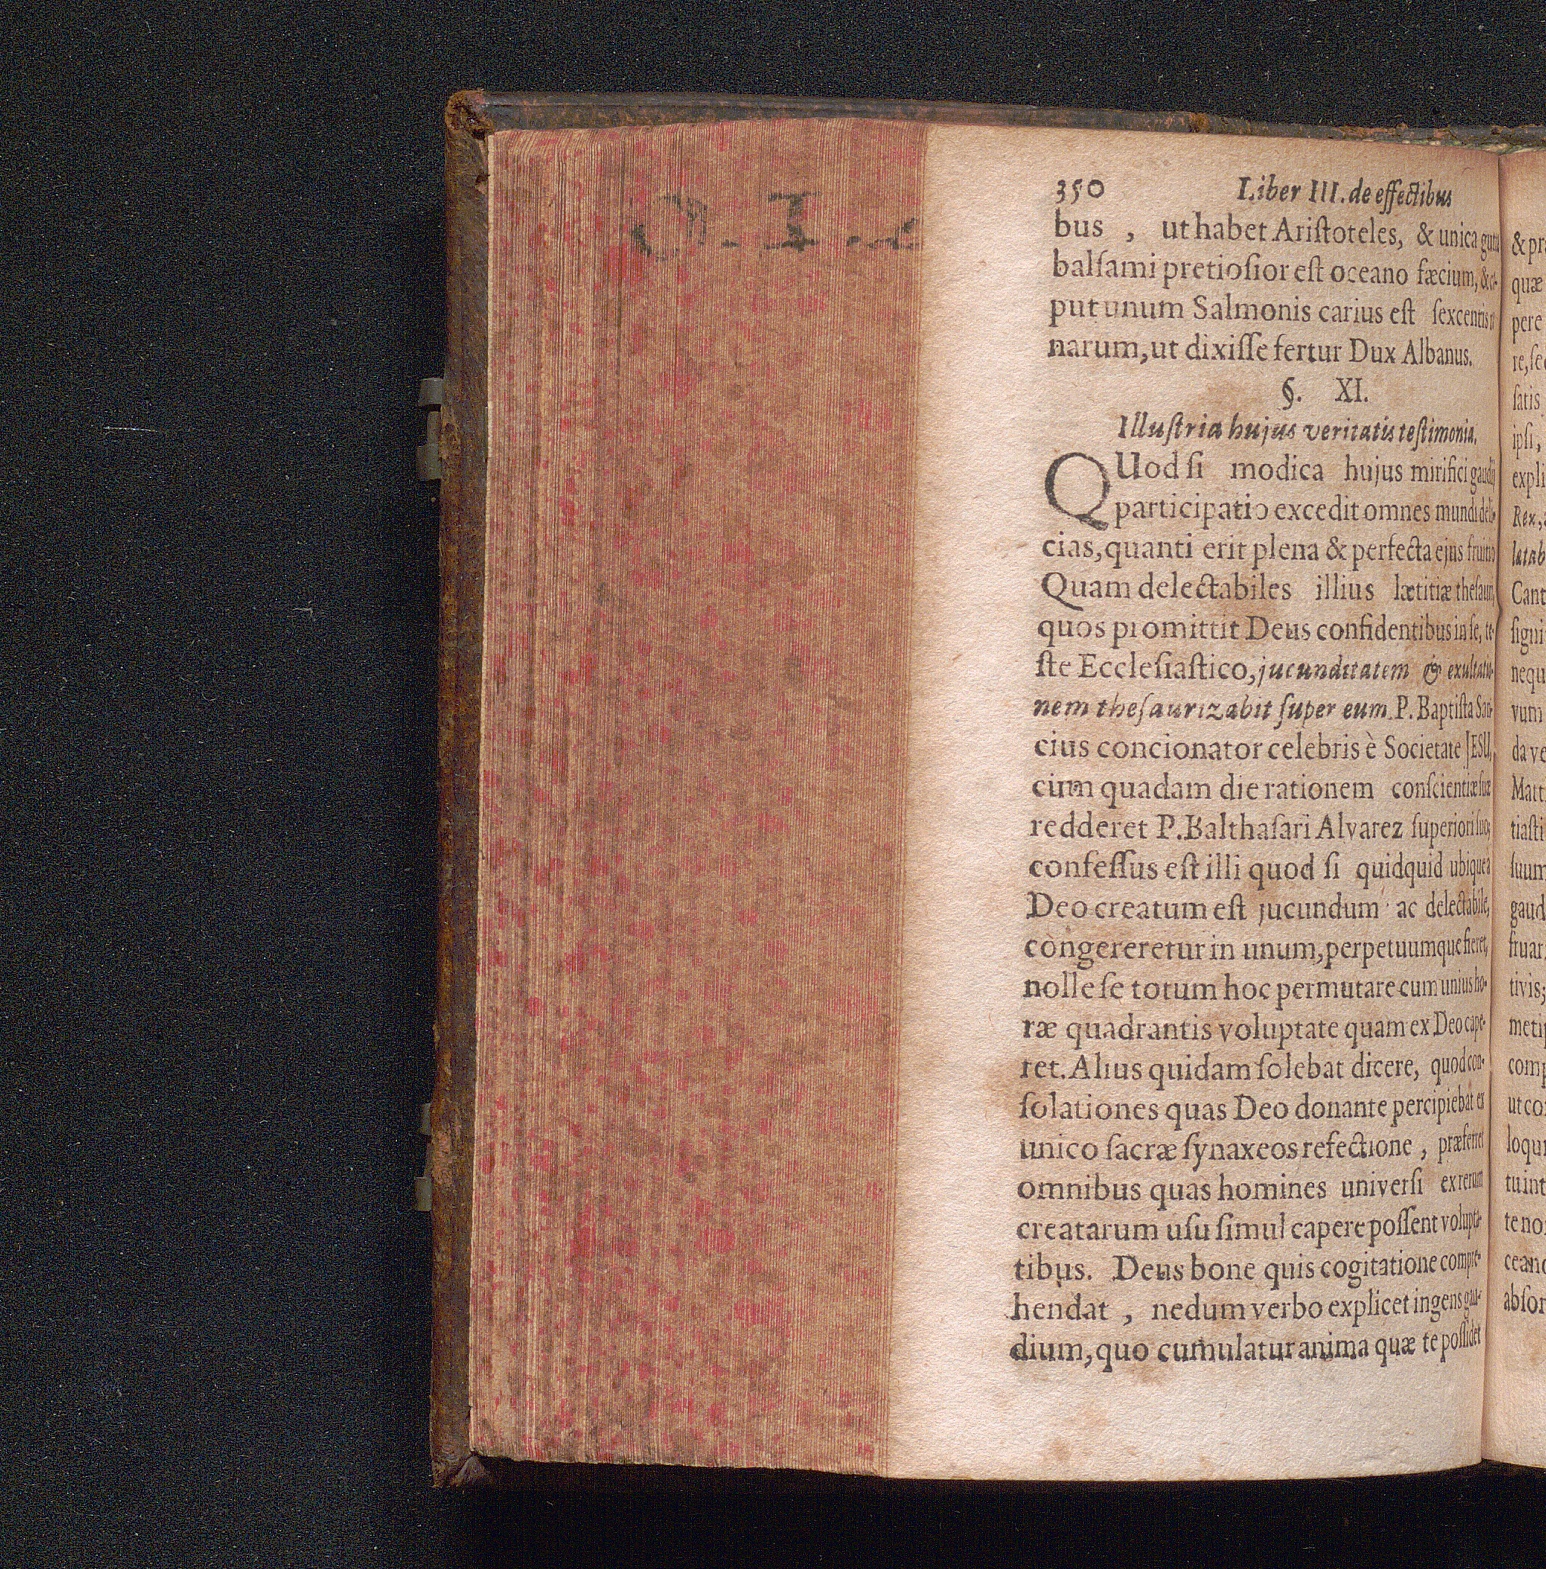 350 Liber III. de effectibus
bus , ut habet Ariſtoteles, & unica gutta
balſami pretioſior eſt oceano fæcium, & ca-
put unum Salmonis carius eſt ſexcentis
narum, ut dixiſſe fertur Dux Albanus.
§. XI.
Illuſtria hujus veritatis teſtimonia.
QUod ſi modica hujus mirifici gaudii
participatio excedit omnes mundi deli-
cias, quanti erit plena & perfecta ejus fruitio
Quam delectabiles illius lætitiæ theſauri,
quos promittit Deus confidentibus in ſe, te-
ſte Eccleſiaſtico, jucunditatem & exultatio-
nem theſaurizabit ſuper eum. P. Baptiſta San-
cius concionator celebris è Societate JESU,
cum quadam die rationem conſcientiæ ſuæ
redderet P. Balthaſari Alvarez ſuperiori ſuo,
confeſſus eſt illi quod ſi quidquid ubique a
Deo creatum eſt jucundum ac delectabile,
congereretur in unum, perpetuumque fieret,
nolle ſe totum hoc permutare cum unius ho-
ræ quadrantis voluptate quam ex Deo cape-
ret. Alius quidam ſolebat dicere, quod con-
ſolationes quas Deo donante percipiebat ex
unico ſacræ ſynaxeos refectione , præferret
omnibus quas homines univerſi ex rerum
creatarum uſu ſimul capere poſſent volupta-
tibus. Deus bone quis cogitatione compre-
hendat , nedum verbo explicet ingens gau-
dium, quo cumulatur anima quæ te poſſidet
& pr
quæ
pere
re, ſe
ſatis
ipſi,
expli
Rex,
lætab
Cant
ſigni
nequ
vum
da ve
Matt
tiaſti
ſuum
gaud
fruar
tivis;
metip
comp
ut co
loqui
tu int
te no
cean
abſor